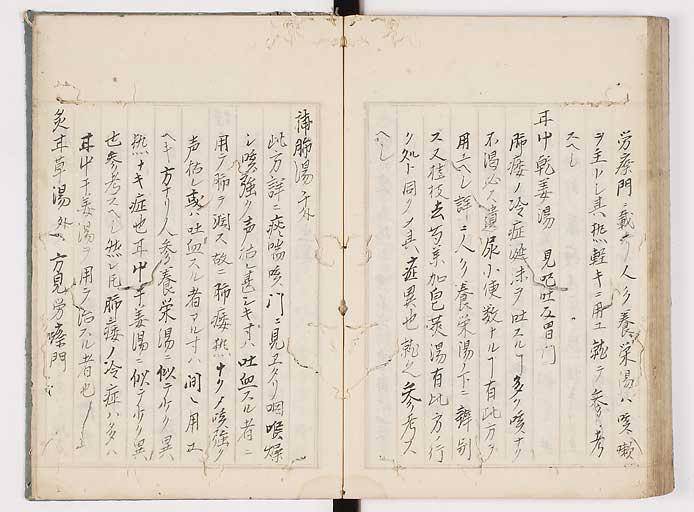 労瘵門ニ載タリ人参養栄湯ハ咳嗽
ヲ主トレ其熱軽キニ用ユ就テ参考
スヘレ
甘艸乾姜湯 見嘔吐反胃門
肺痿ノ冷症涎沫ヲ吐スルヿ多ク咳ナク
不渇必ス遺尿小便数ナルヿ有此方ヲ
用ユヘレ詳ニ人参養栄湯ノ下ニ辨別
ス又桂枝去芍薬加皂莢湯有此方ノ行
ク処ト同クノ其症異也就之参考ス
ヘレ
清肺湯 千外
此方詳ニ痰喘咳門ニ見ユタリ咽喉燥
シ咳強ク声枯レ甚シキ寸ハ吐血スル者ニ
用テ肺ヲ潤ス故ニ肺痿熱ナクノ咳強ク
声枯レ或ハ吐血スル者アル寸ハ間々用ユ
ヘキ方ナリ人参養栄湯ニ似テ少ク異
熱ナキ症也甘艸干姜湯ニ似テ少ク異
也参考スヘレ然レ𪜈肺痿ノ冷症ハ多ハ
甘艸干姜湯ヲ用テ治スル者也
炙甘草湯 外 方見労瘵門